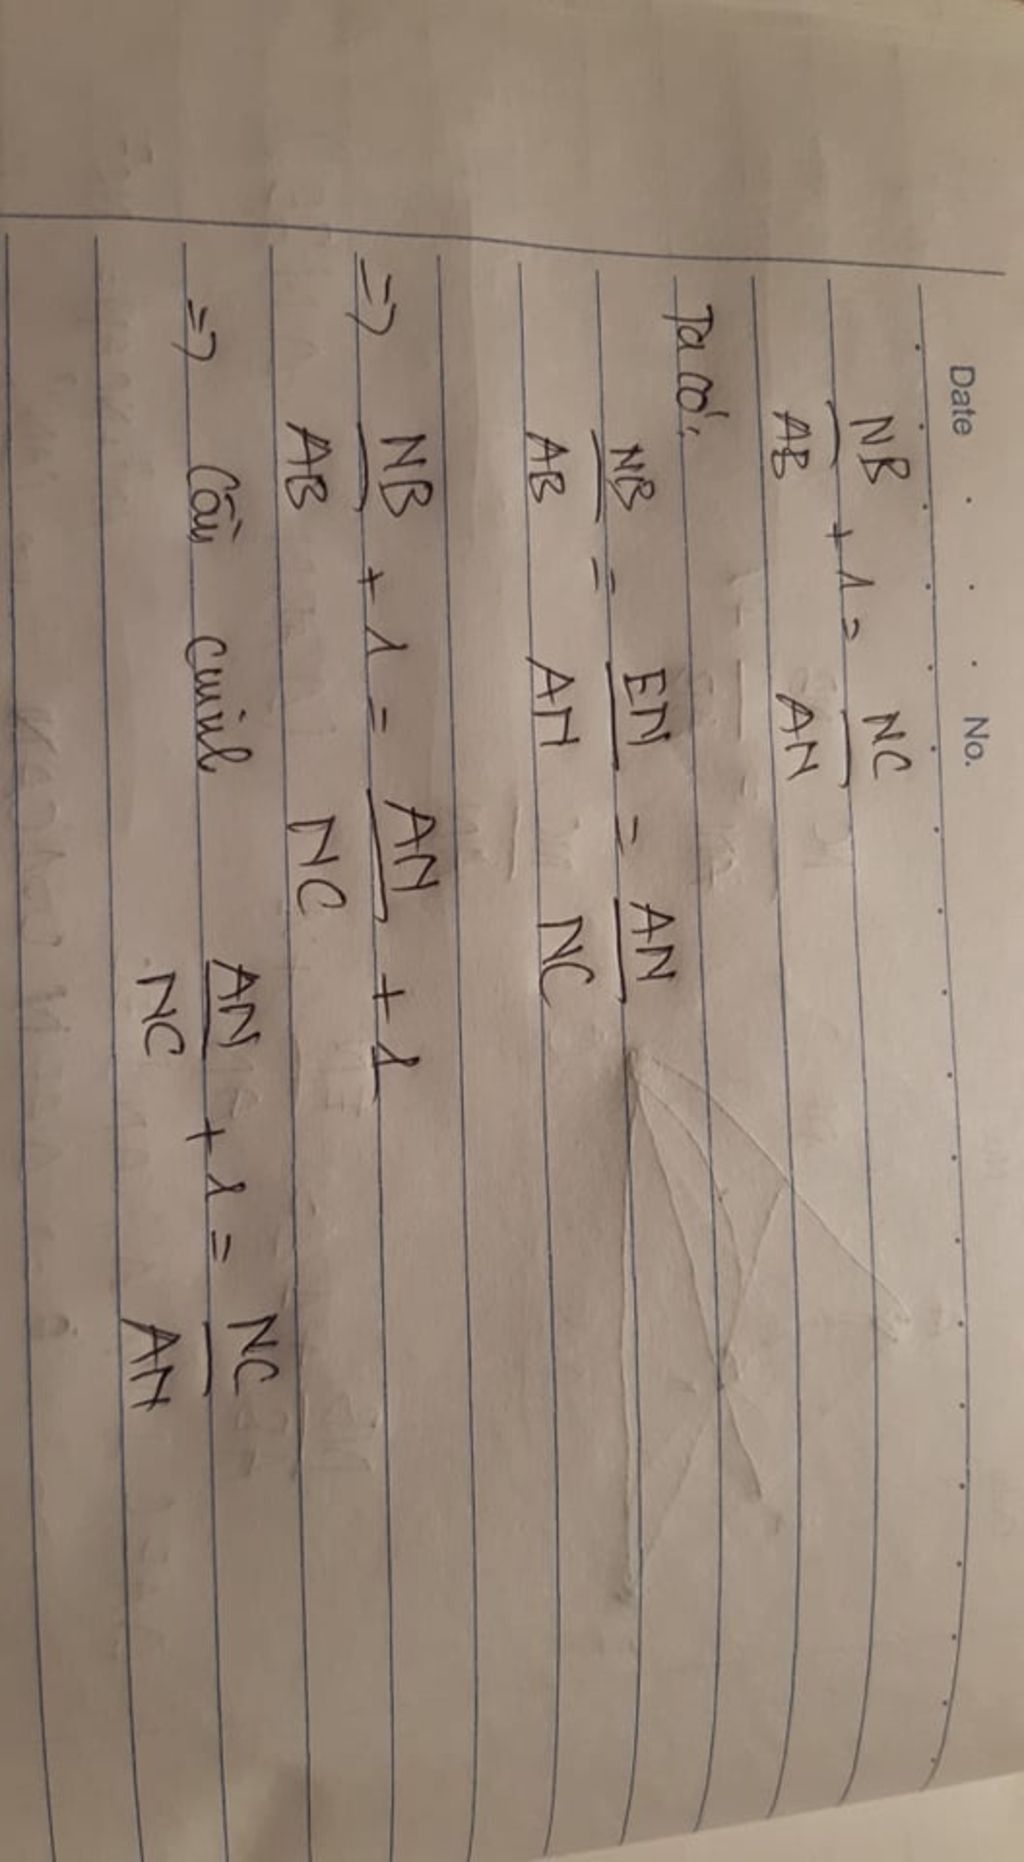 Date . . . No.
NB/AB + 1 = NC/AN
Ta có:
NB/AB = EN/AN = AN/NC
=> NB/AB + 1 = AN/NC + 1
=> Cần cminh AN/NC + 1 = NC/AN